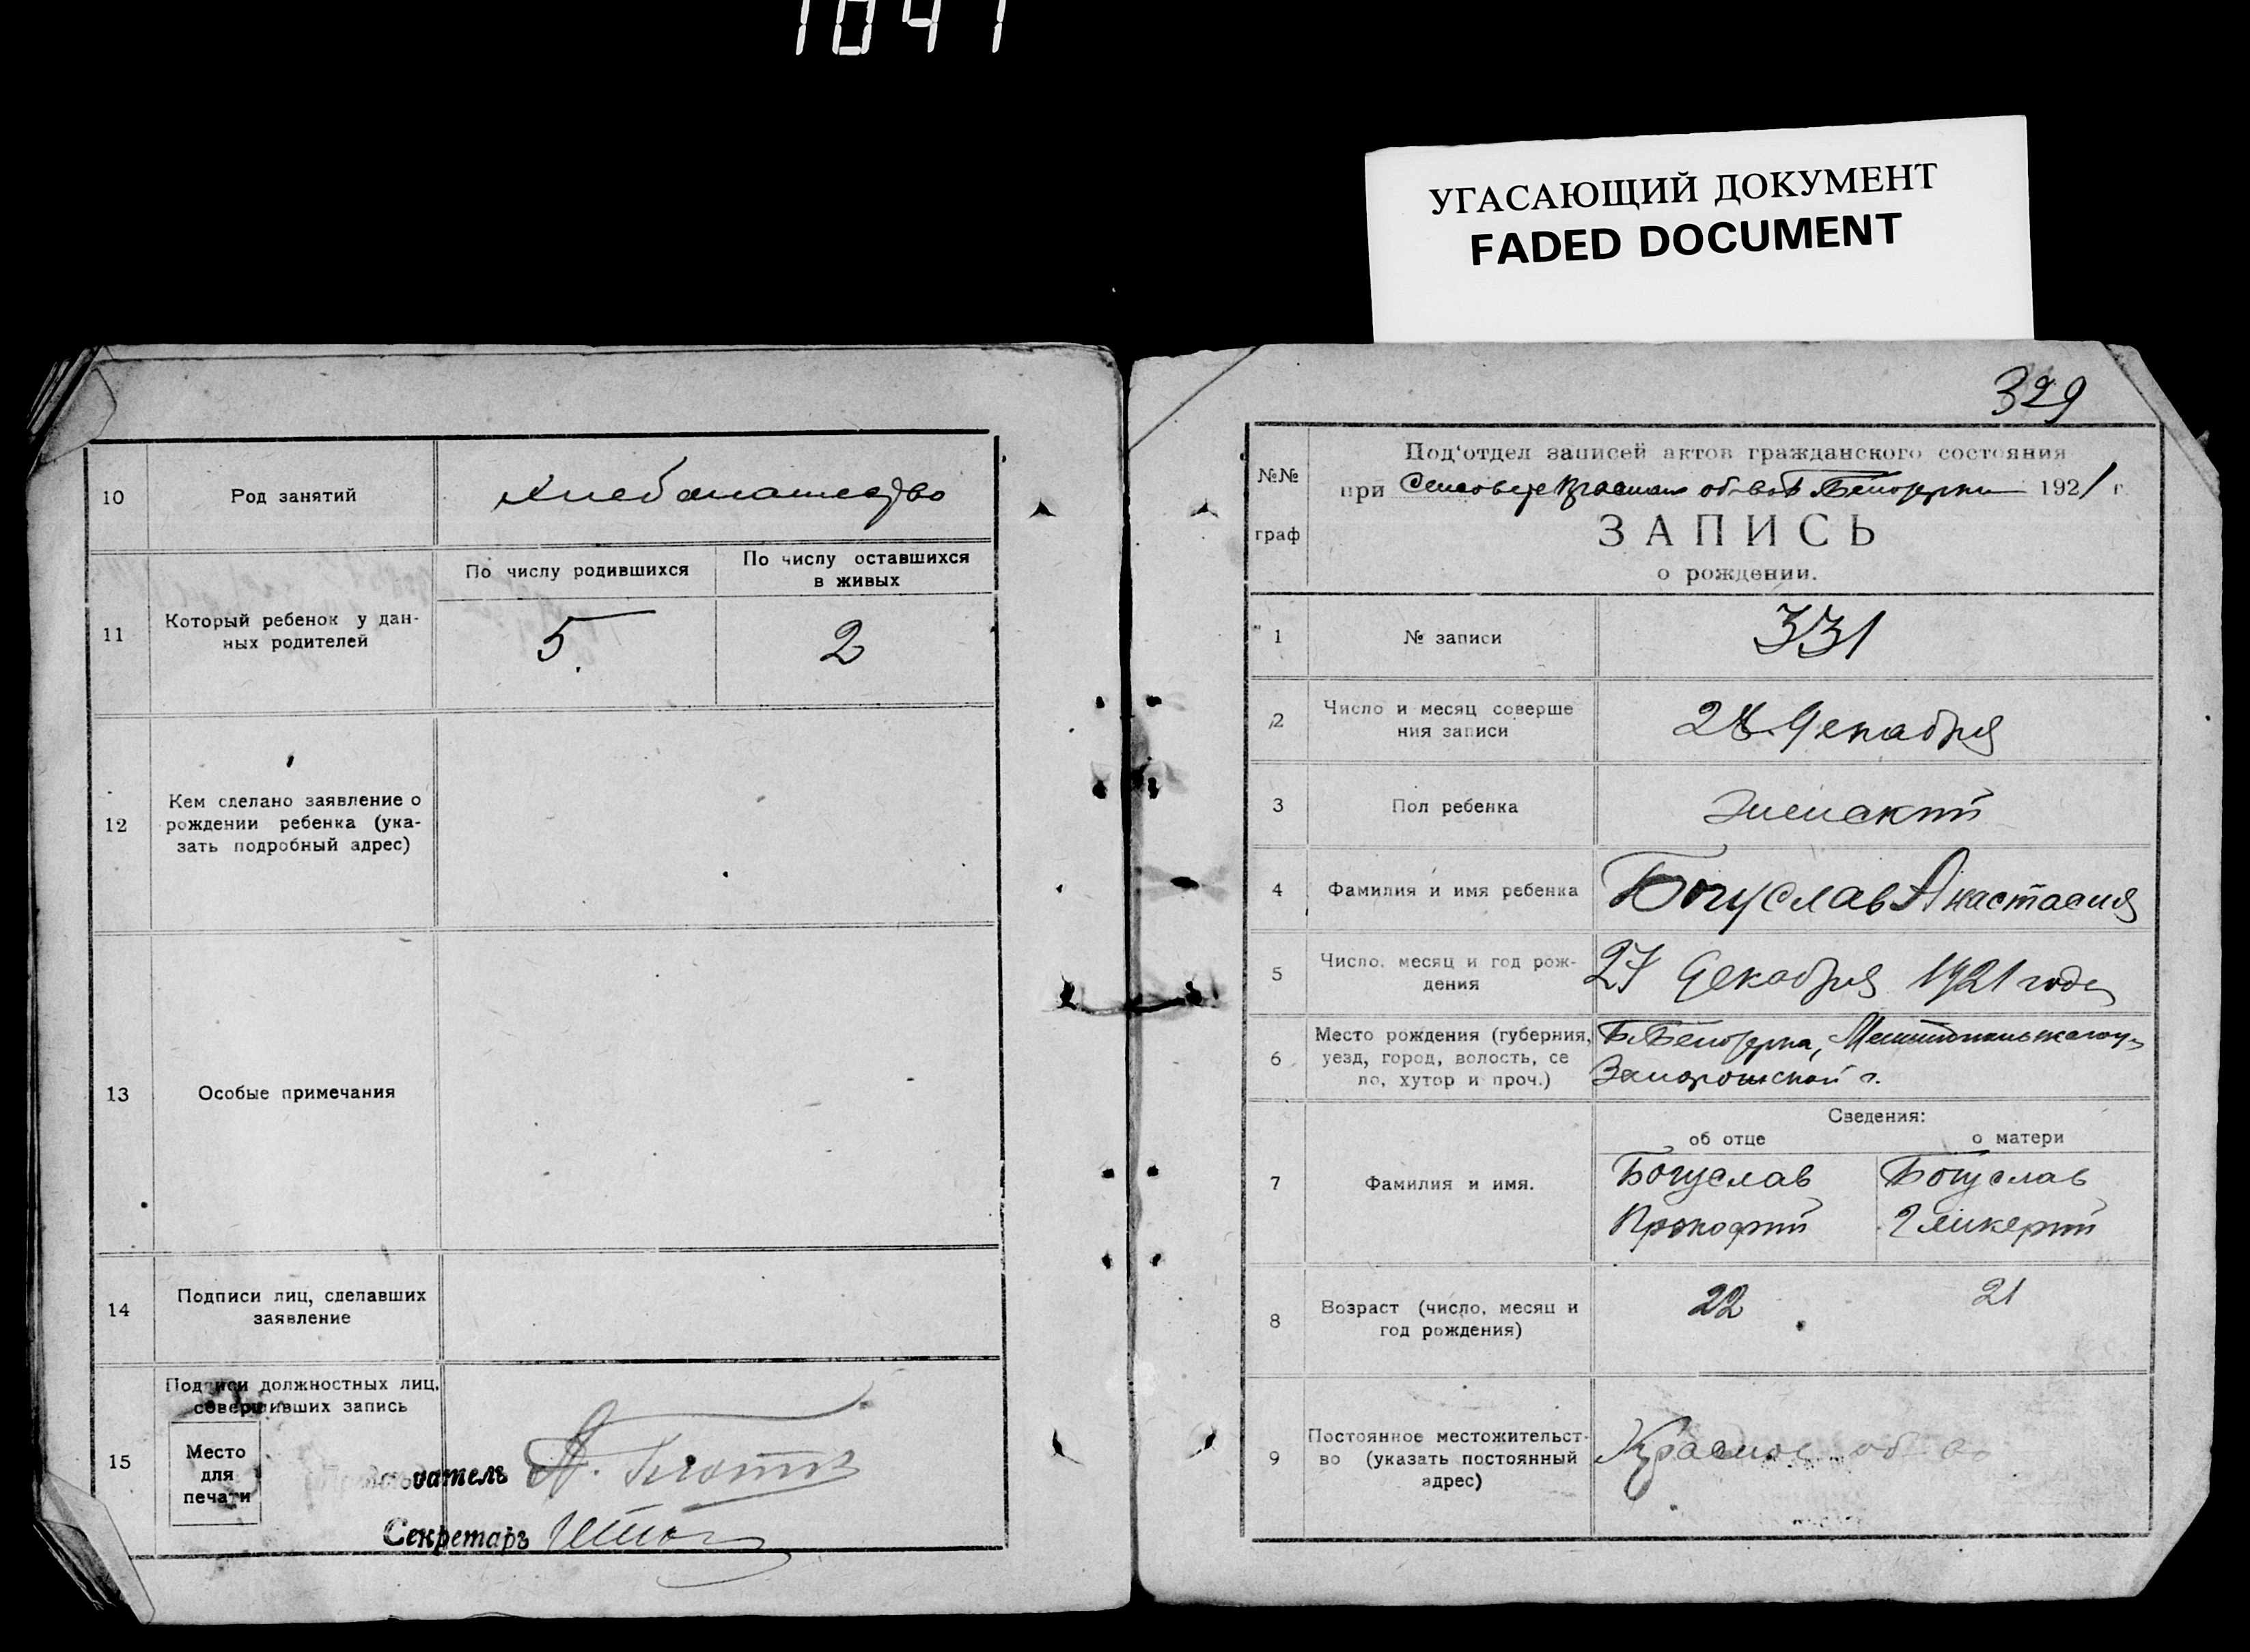 УГАСАЮЩИЙ ДОКУМЕНТ
FADED DOCUMENT
10
Род занятий
Хлебопашество
11
Который ребенок у дан-
ных родителей
По числу родившихся
По числу оставшихся
в живых
5
2
12
Кем сделано заявление о
рождении ребенка (ука-
зать подробный адрес)
13
Особые примечания
14
Подписи лиц, сделавших
заявление
15
Подписи должностных лиц,
совершивших запись
Место
для
печати
Секретарь
329
№№
граф
Под'отдел записей актов гражданского состояния
при об-во Б Белозерки 1921 г
ЗАПИСЬ
о рождении.
1
№ записи
331
2
Число и месяц соверше
ния записи
28 Декабря
3
Пол ребенка
Женский
4
Фамилия и имя ребенка
Богуслав Анастасия
5
Число, месяц и год рож-
дения
27 Декабря 1921 года
6
Место рождения (губерния,
уезд, город, волость, се
ло, хутор и проч.)
Б Белозерка,
Запорожской г.
Сведения:
об отце
о матери
7
Фамилия и имя.
Богуслав
Прокофий
Богуслав
Гликерий
8
Возраст (число, месяц и
год рождения)
22
21
9
Постоянное местожительст-
во (указать постоянный
адрес)
Красное об-во